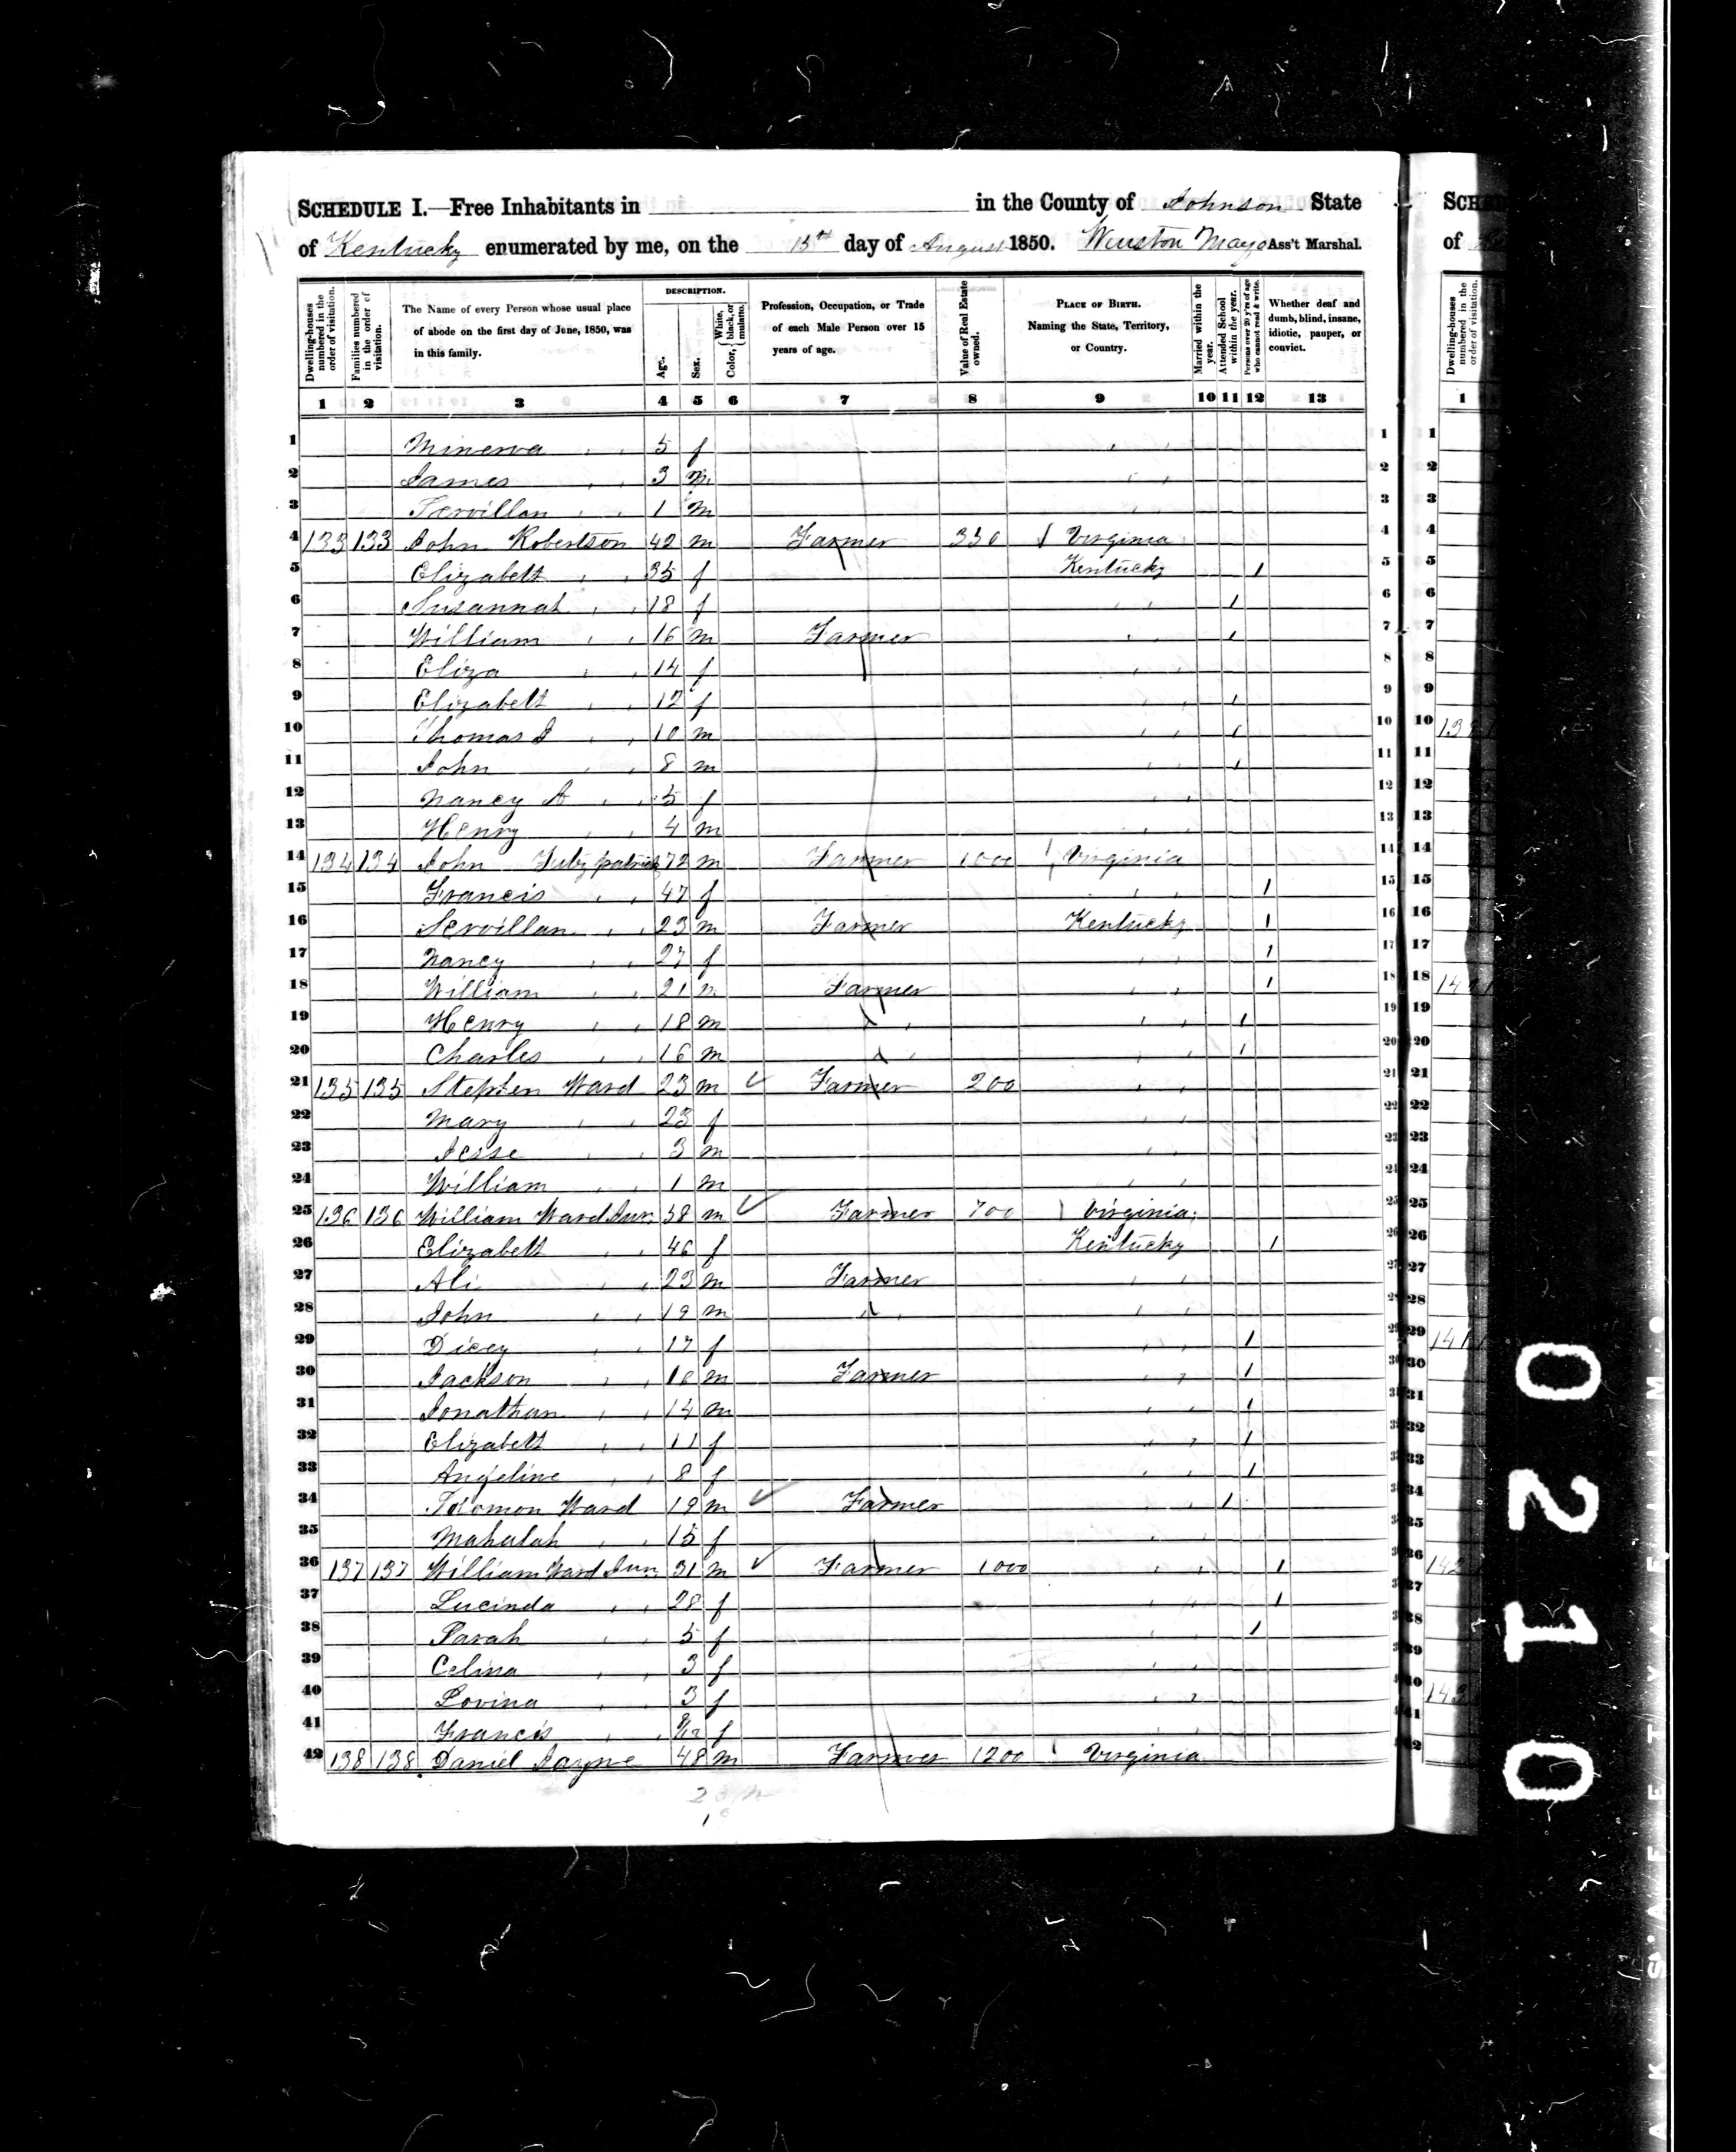 SCHEDULE I.—Free Inhabitants in in the County of Johnson State
of Kentucky enumerated by me, on the 15th day of August 1850. Winston Mayo Ass't Marshal.
Dwelling-houses numbered in the order of visitation.
Families numbered in the order of visitation.
The Name of every Person whose usual place of abode on the first day of June, 1850, was in this family.
DESCRIPTION.
Age.
Sex.
Color, { White, black, or mulatto.
Profession, Occupation, or Trade of each Male Person over 15 years of age.
Value of Real Estate owned.
PLACE OF BIRTH. Naming the State, Territory, or Country.
Married within the year.
Attended School within the year.
Persons over 20 y'rs of age who cannot read & write.
Whether deaf and dumb, blind, insane, idiotic, pauper, or convict.
1 2 3 4 5 6 7 8 9 10 11 12 13
1 Minerva " " 5 f " " 1
2 James " " 3 m " " 2
3 " " 1 m " " 3
4 133 133 John Robertson 42 m Farmer 350 Virginia 4
5 Elizabeth " " 35 f Kentucky 1 5
6 Susannah " " 18 f " " 1 6
7 William " " 16 m Farmer " " 1 7
8 Eliza " " 14 f " " 8
9 Elizabeth " " 12 f " " 1 9
10 Thomas J " " 10 m " " 1 10
11 John " " 8 m " " 1 11
12 Nancy A " " 5 f " " 12
13 Henry " " 4 m " " 13
14 134 134 John Fitzpatrick 72 m Farmer 1000 Virginia 14
15 Francis " " 47 f " " 1 15
16 Servillan " " 23 m Farmer Kentucky 1 16
17 Nancy " " 27 f " " 1 17
18 William " " 21 m Farmer " " 1 18
19 Henry " " 18 m " " " " 1 19
20 Charles " " 16 m " " " " 1 20
21 135 135 Stephen Ward 23 m ✓ Farmer 200 " " 21
22 Mary " " 23 f " " 22
23 Jesse " " 3 m " " 23
24 William " " 1 m " " 24
25 136 136 William Ward 58 m ✓ Farmer 700 Virginia 25
26 Elizabeth " " 46 f Kentucky 1 26
27 Ali " " 23 m Farmer " " 27
28 John " " 19 m " " " " 28
29 Dicey " " 17 f " " 1 29
30 Jackson " " 16 m Farmer " " 1 30
31 Jonathan " " 14 m " " 1 31
32 Elizabeth " " 11 f " " 1 32
33 Angeline " " 8 f " " 1 33
34 Solomon Ward 19 m ✓ Farmer " " 1 34
35 Mahalah " " 15 f " " 35
36 137 137 William Ward Jun 31 m ✓ Farmer 1000 " " 1 36
37 Lucinda " " 28 f " " 1 37
38 Sarah " " 5 f " " 1 38
39 Celina " " 3 f " " 39
40 Lovina " " 3 f " " 40
41 Francis " " 8/12 f " " 41
42 138 138 Daniel Payne 48 m Farmer 1200 Virginia 42
0210